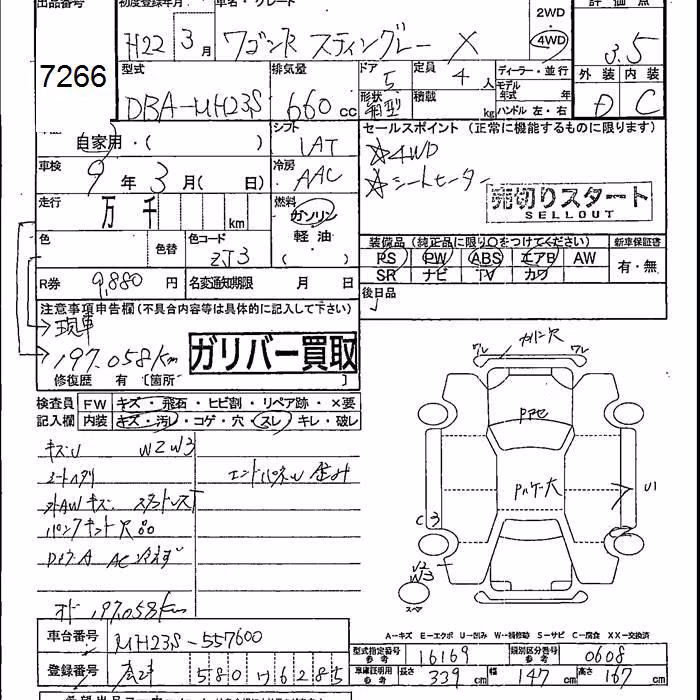 出品番号 初度登録年月 車名・グレード 評価点
7266 H22年 3月 ワゴンR スティングレー X 2WD 4WD 3.5
型式 排気量 ドア 定員 ディーラー・並行 外装 内装
DBA-MH23S 660cc 5 4人 形状 箱型 積載 kg モデル年式 年 ハンドル 左・右 D C
自家用・( ) シフト LAT セールスポイント (正常に機能するものに限ります)
車検 9年 3月( 日) 冷房 AAC ☆4WD
☆シートヒーター
走行 万 千 km 燃料 ガソリン 軽油 ( ) 売切りスタート
SELLOUT
色 色替 色コード ZJ3 装備品(純正品に限り○をつけてください) 新車保証書
PS PW ABS エアB AW 有・無
SR ナビ TV カワ
R券 9,880円 名変通知期限 月 日 後日品
注意事項申告欄(不具合内容等は具体的に記入して下さい)
現車
197,058km ガリバー買取
修復歴 有 〔箇所 〕
検査員 FW キズ・飛石・ヒビ割・リペア跡・×要
記入欄 内装 キズ・汚レ・コゲ・穴・スレ・キレ・破レ
キズU W2 W3
エンドパネル
外AWキズ スタッドレス
パンクキット欠品
AC冷えず
197,058km
車台番号 MH23S-557600
登録番号 580 6285
ワレ ワレ
U1
C3 C2
U2
W3
スペア
A-キズ E-エクボ U-凹み W-補修跡 S-サビ C-腐食 XX-交換済
型式指定番号 参考 16169 類別区分番号 参考 0608
車庫証明用 参考 長さ 339cm 幅 147cm 高さ 167cm